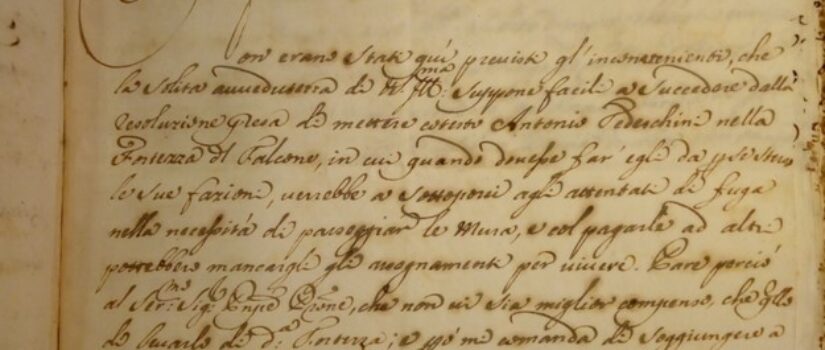 on erano state quì previste gl'inconvenienti, che
la solita avvedutezza di V. S. Ill:ma suppone facili a succedere dalla
resoluzione presa di mettere cotesto Antonio Tedeschini nella
Fortezza del Falcone, in cui quando dovesse far' egli da p se stesso
le sue fazioni, verrebbe a sottoporsi agli attentati di fuga
nella necessità di passeggiar le Mura, e col pagarle ad altri
potrebbero mancargli gli assegnamenti per vivere. Pare perciò
al Ser:mo Sig:re Pnpe Prone, che non vi sia miglior compenso, che qllo
di levarlo di d:a Fortezza; e mi comanda di soggiungere a